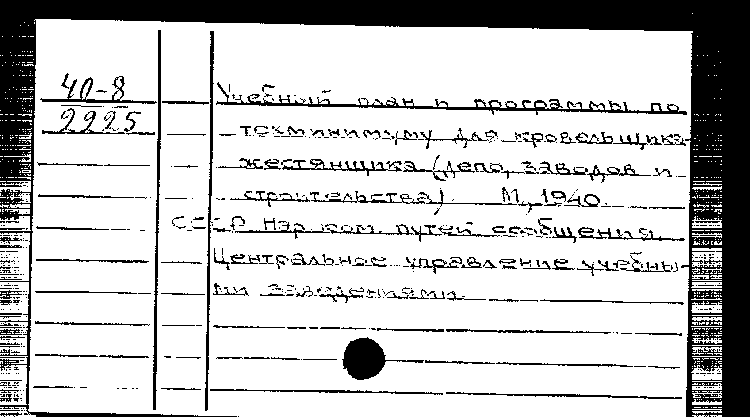 40-8
2225
Учебный план и программы по
техминимуму для кровельщика-
жестянщика (депо, заводов и
строительства). М., 1940.
СССР. Нар. ком. путей сообщения.
Центральное управление учебны-
ми заведениями.